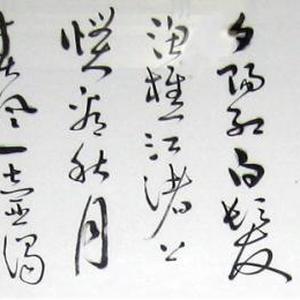 夕陽紅白髮
漁樵江渚上
慣看秋月
春風一壺濁